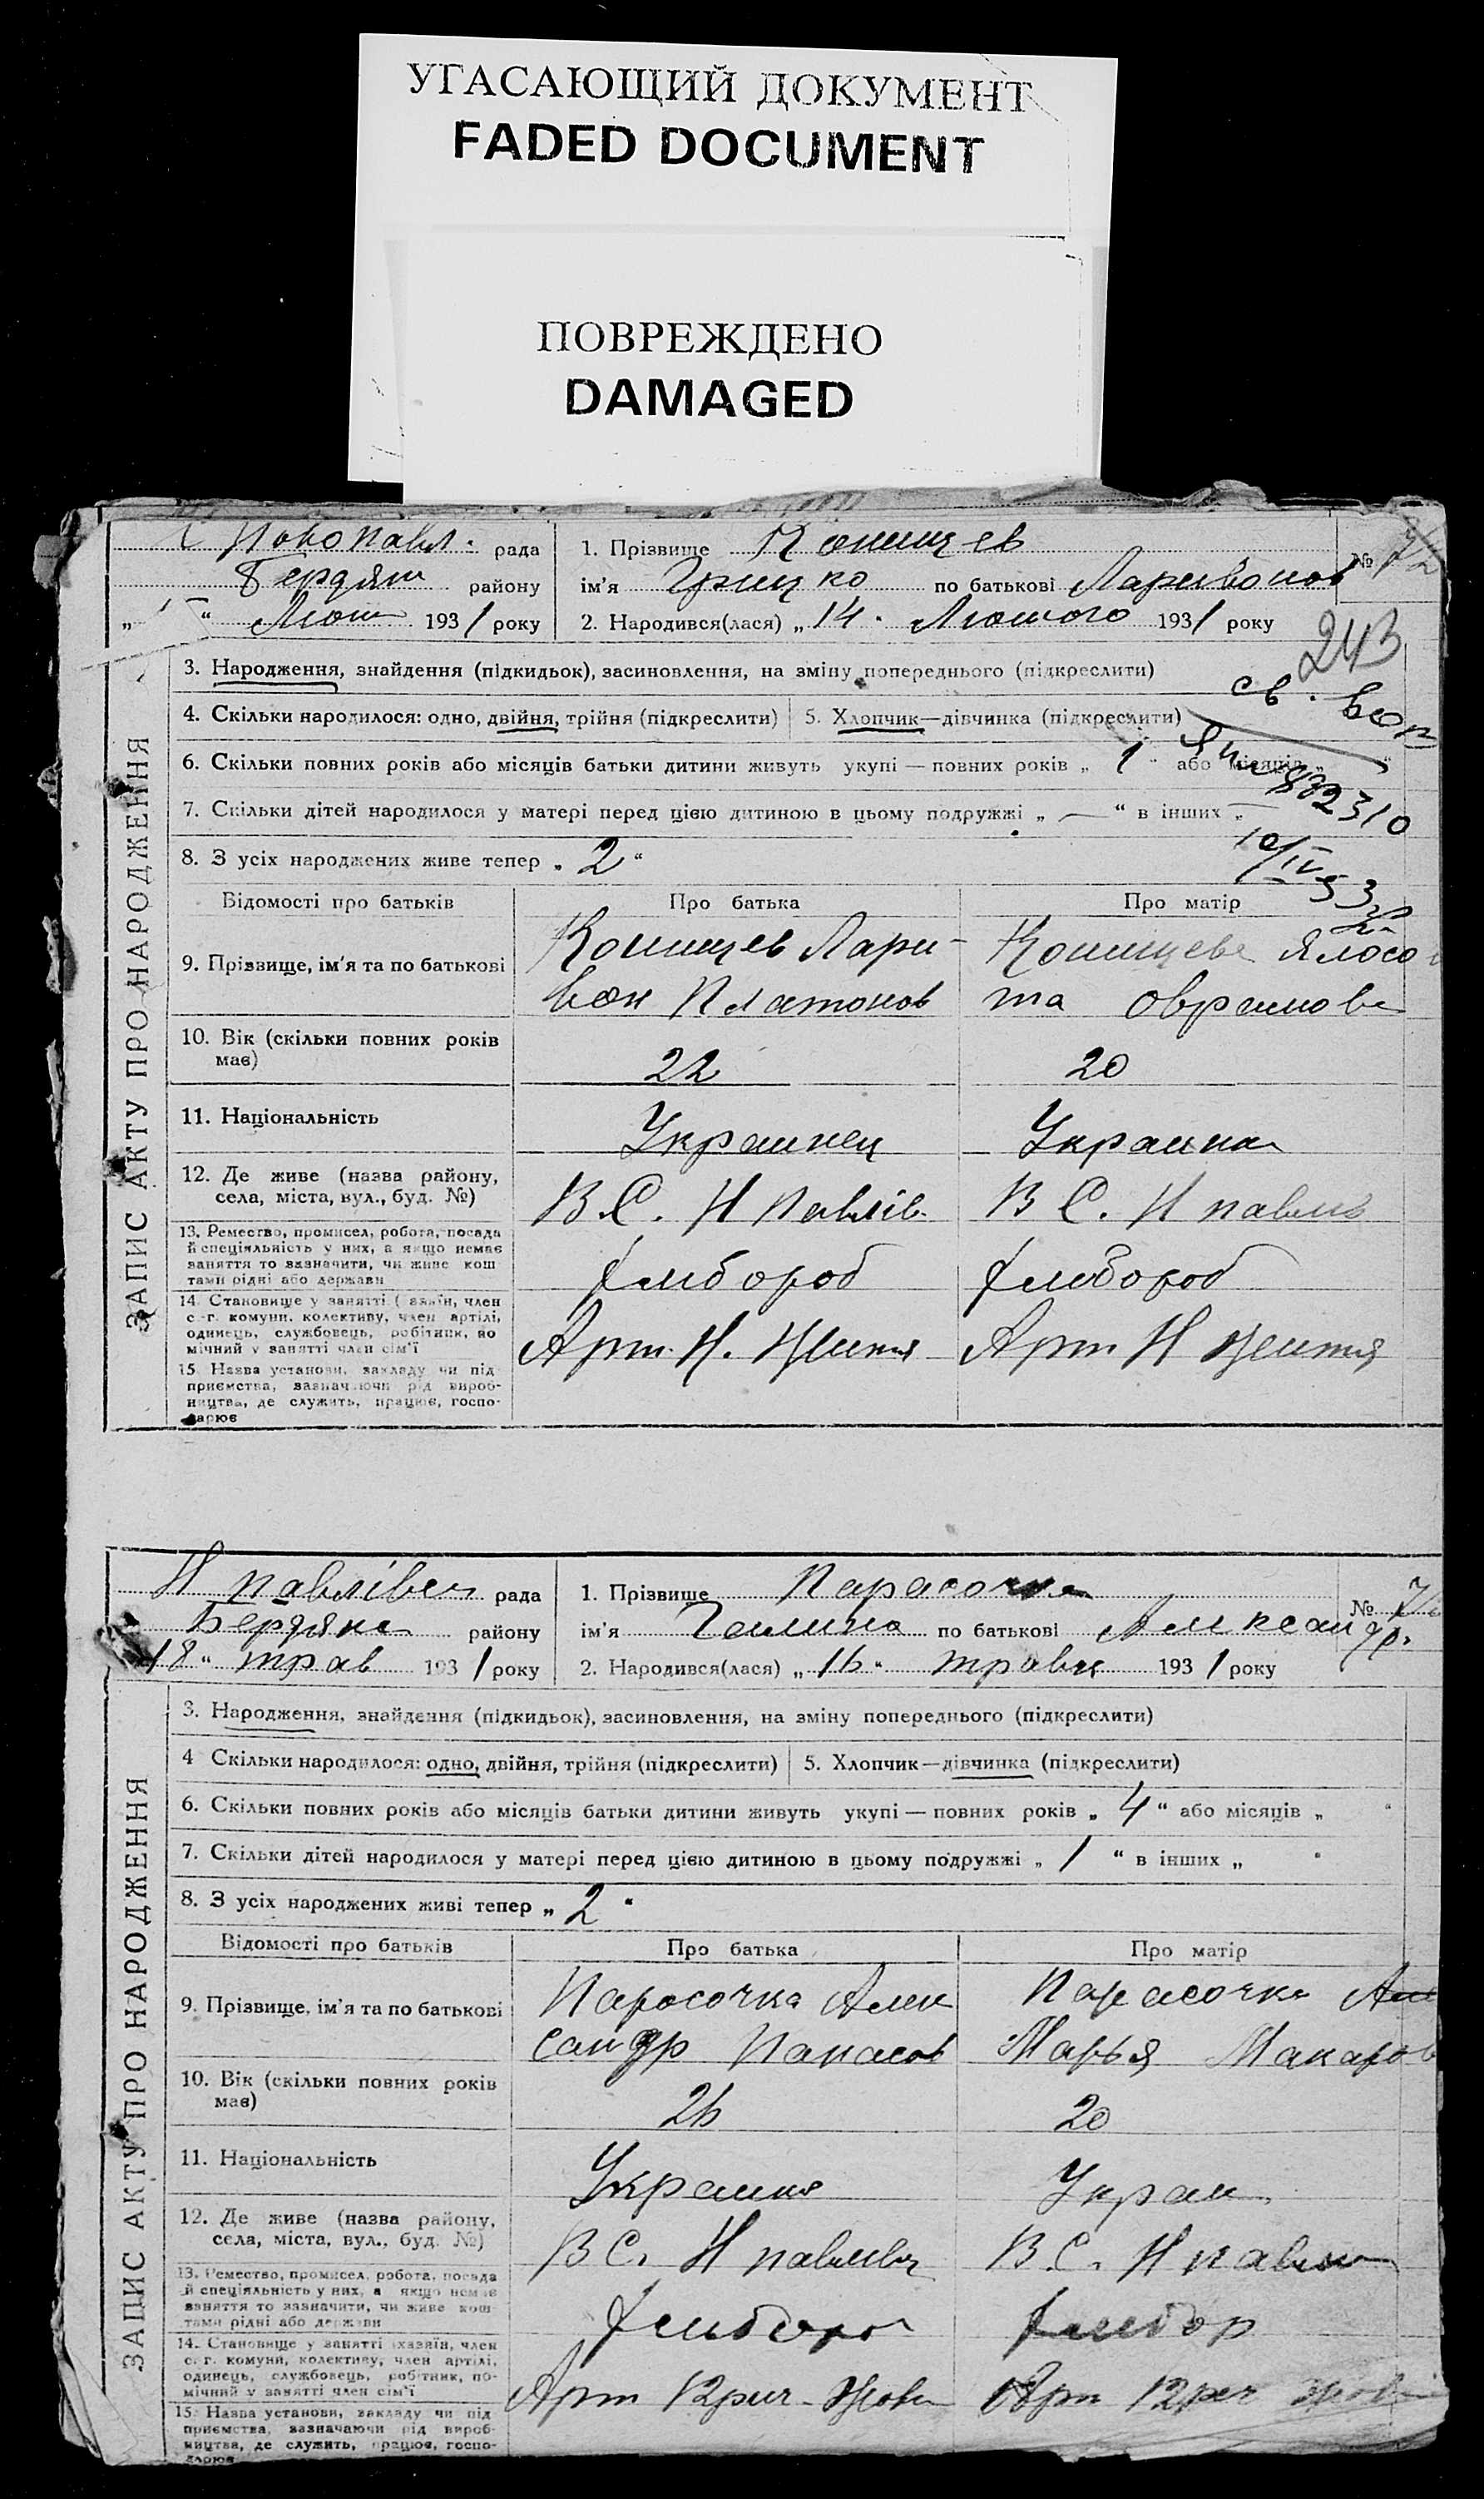 УГАСАЮЩИЙ ДОКУМЕНТ
FADED DOCUMENT
ПОВРЕЖДЕНО
DAMAGED
ЗАПИС АКТУ ПРО НАРОДЖЕННЯ
Новопавл. рада
Бердян району
Лют 1931 року
1. Прізвище Конищев
№
ім'я Грицко по батькові Ларивонов
2. Народився(лася) „14" Лютого 1931 року
243
св. вон
3. Народження, знайдення (підкидьок), засиновлення, на зміну попереднього (підкреслити)
4. Скільки народилося: одно, двійня, трійня (підкреслити) 5. Хлопчик—дівчинка (підкреслити)
6. Скільки повних років або місяців батьки дитини живуть укупі — повних років „ 1 " або місяців „
832310
7. Скільки дітей народилося у матері перед цією дитиною в цьому подружжі „ — " в інших „ —
10/IV 53
8. З усіх народжених живе тепер „ 2 "
Відомості про батьків Про батька Про матір
9. Прізвище, ім'я та по батькові
Конищев Лари-
вон Платонов
Конищева Ялосо
та Оврамова
10. Вік (скільки повних років
має)
22 20
11. Національність
Украинец Украинка
12. Де живе (назва району,
села, міста, вул., буд. №)
В.С. Н Павлів В С. Н павлів
13. Ремество, промисел, робота, посада
й спеціяльність у них, а якщо немає
заняття то зазначити, чи живе кош
тами рідні або держави
хлибороб хлибороб
14. Становище у занятті ( хазяїн, член
с.-г. комуни, колективу, член артілі,
одинець, службовець, робітник, по
мічний у занятті член сім'ї
Арт. Н. Життя Арт Н Життя
15. Назва установи, закладу чи під
приємства, зазначаючи рід вироб-
ництва, де служить, працює, госпо-
дарює
ЗАПИС АКТУ ПРО НАРОДЖЕННЯ
Н павлівск рада
Бердянс району
18 " трав 1931 року
1. Прізвище Парасочка
№
ім'я Галина по батькові Алксандр.
2. Народився(лася) „16" травн 1931 року
3. Народження, знайдення (підкидьок), засиновлення, на зміну попереднього (підкреслити)
4 Скільки народилося: одно, двійня, трійня (підкреслити) 5. Хлопчик—дівчинка (підкреслити)
6. Скільки повних років або місяців батьки дитини живуть укупі — повних років „ 4 " або місяців „ "
7. Скільки дітей народилося у матері перед цією дитиною в цьому подружжі „ 1 " в інших „ "
8. З усіх народжених живі тепер „ 2 "
Відомості про батьків Про батька Про матір
9. Прізвище, ім'я та по батькові
Паросочка Алек
сандр Панасов
Парасочка
Марья Макаров
10. Вік (скільки повних років
має)
26 20
11. Національність
Украинц Украи
12. Де живе (назва району,
села, міста, вул., буд. №)
В С. Н павливц В. С. Н павли
13. Ремество, промисел, робота, посада
й спеціяльність у них, а якщо немає
заняття то зазначити, чи живе кош
тами рідні або держави
хлиборо хлибор
14. Становище у занятті (хазяїн, член
с.-г. комуни, колективу, член артілі,
одинець, службовець, робітник, по-
мічний у занятті член сім'ї
Арт 12 рич. Жовт Арт 12 рич Жовт
15. Назва установи, закладу чи під
приємства, зазначаючи рід вироб-
ництва, де служить, працює, госпо-
дарює